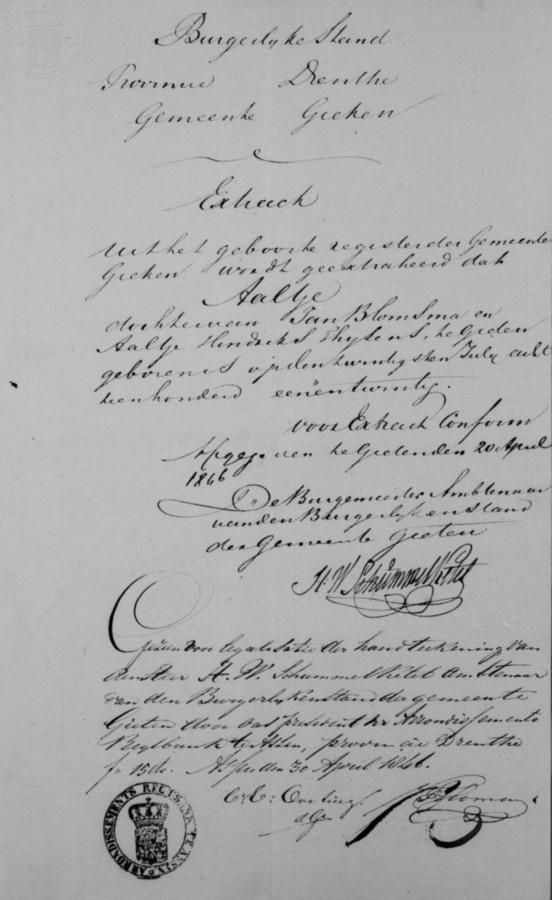 Burgerlyke Stand
Provincie Drenthe
Gemeente Gieten
Extract
Uit het geboorte register der Gemeente
Gieten wordt geextraheerd dat
Aaltje
dochter van Jan Blomsma en
Aaltje Hendriks Thysens, te Gieten
geboren is op den twintigsten July acht
tienhonderd eenëntwintig.
voor Extract Conform
Afgegeven te Gieten den 20 April
1846
De Burgemeester Ambtenaar
van den Burgerlyken stand
der Gemeente Gieten
H. W. Schummelketel
Gezien voor legalisatie der handteekening van
den Heer H. W. Schummelketel Ambtenaar
van den Burgerlyken stand der gemeente
Gieten door ons president der Arrondissements
Regtbank te Assen, provincie Drenthe
15 Assen den 30 April 1846.
Oosting
ARRONDISSEMENTS REGTBANK TE ASSEN